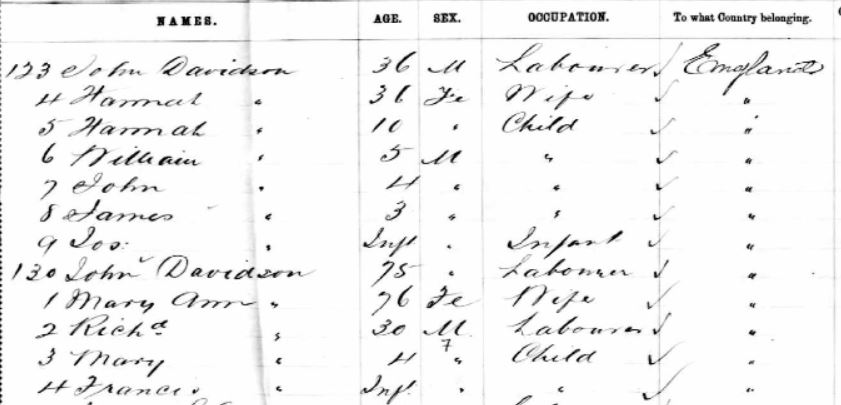 NAMES. AGE. SEX. OCCUPATION. To what Country belonging.
123 John Davidson 36 M Labourer ✓ England
4 Hannah " 36 Fe Wife ✓ "
5 Hannah " 10 " Child ✓ "
6 William " 5 M " ✓ "
7 John " 4 " " ✓ "
8 James " 3 " " ✓ "
9 Jos: " Inft " Infant ✓ "
130 John Davidson 75 " Labourer ✓ "
1 Mary Ann " 76 Fe Wife ✓ "
2 Richd " 30 M Labourer ✓ "
3 Mary " 4 7 " Child ✓ "
4 Francis " Inft " " ✓ "